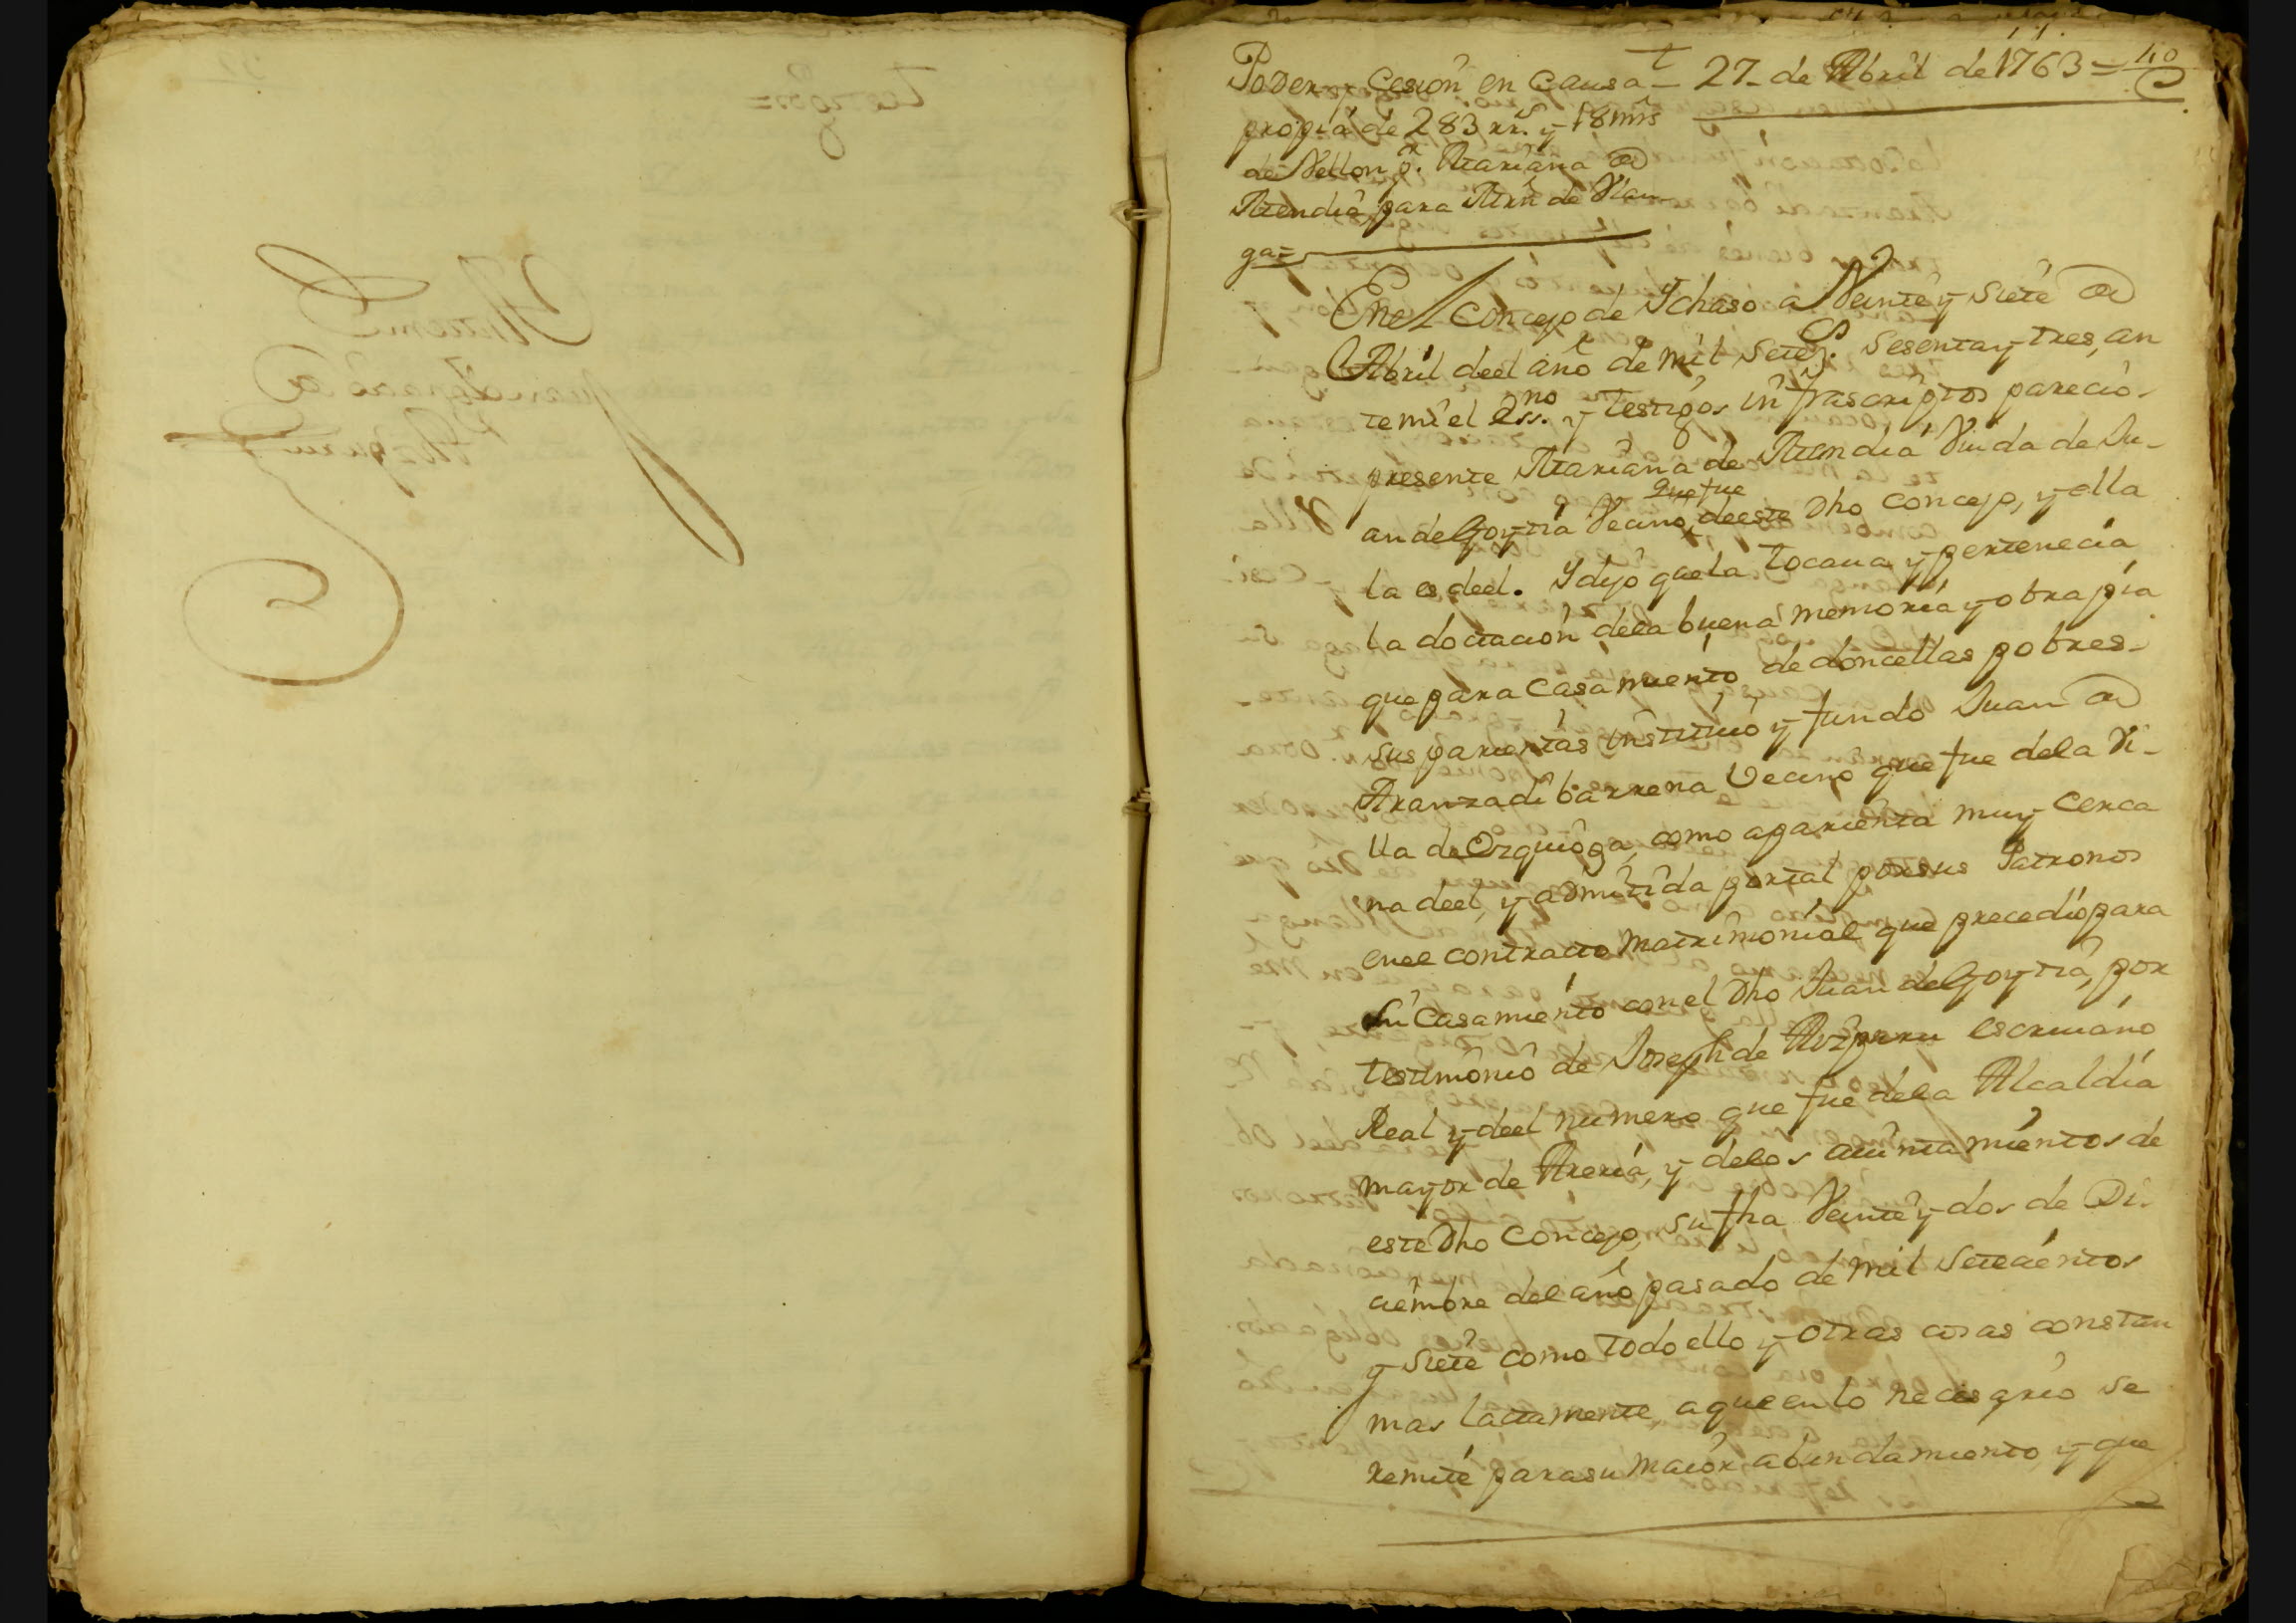 Poder y Cesion en Causa - 27 de Abril de 1763 = 40
propia de 283 rr.s y 18 mrs
de Vellon p.r Mariana de
Mendia, para Mrn de Vlan-
ga =
En el Concejo de Ychaso a Veinte y Siete de
Abril deel año de mil Setez.s Sesenta y tres, an
te mi el Ess.no y testigos infrascriptos parecio
presente Mariana de Mendia Viuda de Ju-
an de Goytia Vecino que fue de este Dho Concejo, y ella
la es deel. Y dijo que la tocaua y pertenecia
la dottacion de la buena memoria y obra pia
que para Casamiento de doncellas pobres
sus parientas instituió y fundó Juan de
Aranzadi barrena Vecino que fue de la Vi-
lla de Ezquioga, como a parienta muy Cerca
na deel, y admitida por tal por sus Patronos
en el contracto matrimonial que precedio para
Su Casamiento con el Dho Juan de Goytia, por
testimonio de Joseph de Aozparru escriuano
Real y deel numero que fue de la Alcaldia
mayor de Areria, y de los aiuntamientos de
este Dho Concejo, su fha Veinte y dos de Di-
ciembre del año pasado de mil Setecientos
y Siete como todo ello y otras cosas constan
mas lattamente, a que en lo necesario se
remite para su maior abundamiento, y que